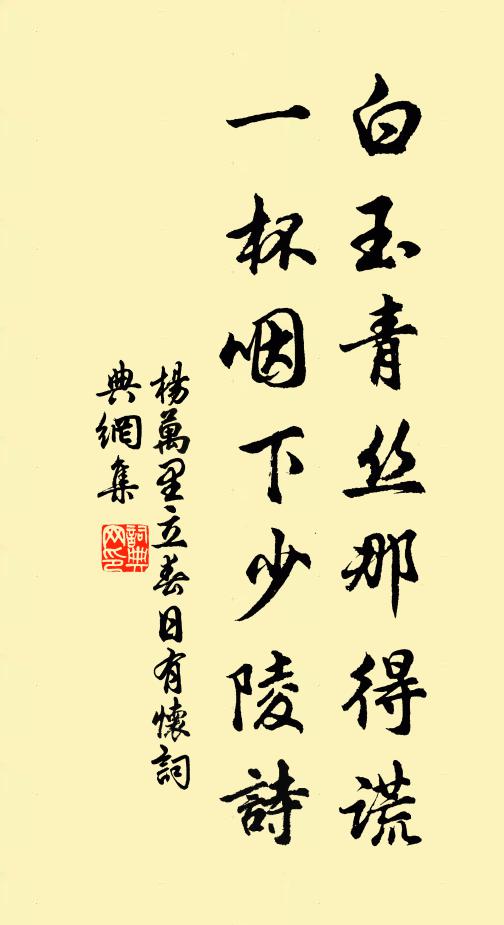 白玉青丝那得谎
一杯咽下少陵詩
楊萬里立春日有懷詞
典網集
詞典網印